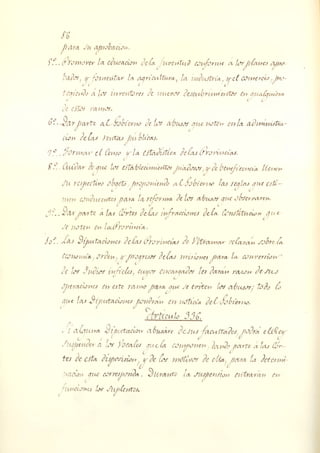 56
para su aprobacion.
5º... Promover la educacion de la juventud conforme à los planes apro-
bados, y fomentar la agricultura, la industria, y el comercio, pro-
tegiendo à los inventores de nuevos descubrimientos en qualquiera
de estos ramos.
6º... Dar parte al Gobierno de los abusos que noten en la administra-
cion de las rentas publicas.
7º... Formar el Censo y la estadistica de las Provincias.
8º. Cuidar de que los establecimientos piadosos, y de beneficencia llenen
su respectivo objeto, proponiendo al Gobierno las reglas que esti-
men conducentes para la reforma de los abusos que observaren.
9º... Dar parte à las Cortes de las infracciones de la Constitucion, que
se noten en la Provincia.
10º. Las Diputaciones de las Provincias de Ultramar velaràn sobre la
economia, orden, y progresos de las misiones para la conversion
de los Indios infieles, cuyos encargados les daràn razon de sus
operaciones en este ramo para que se eviten los abusos; todo lo
que las Diputaciones pondràn en noticia del Gobierno.
Articulo 336.
Si alguna Diputacion abusàre de sus facultades, podrà el Rey
suspender à los Vocales que la componen, dando parte à las Cor-
tes de esta disposicion, y de los motivos de ella, para la determi-
nacion que corresponda. Durante la suspension entraràn en
funciones los Suplentes.